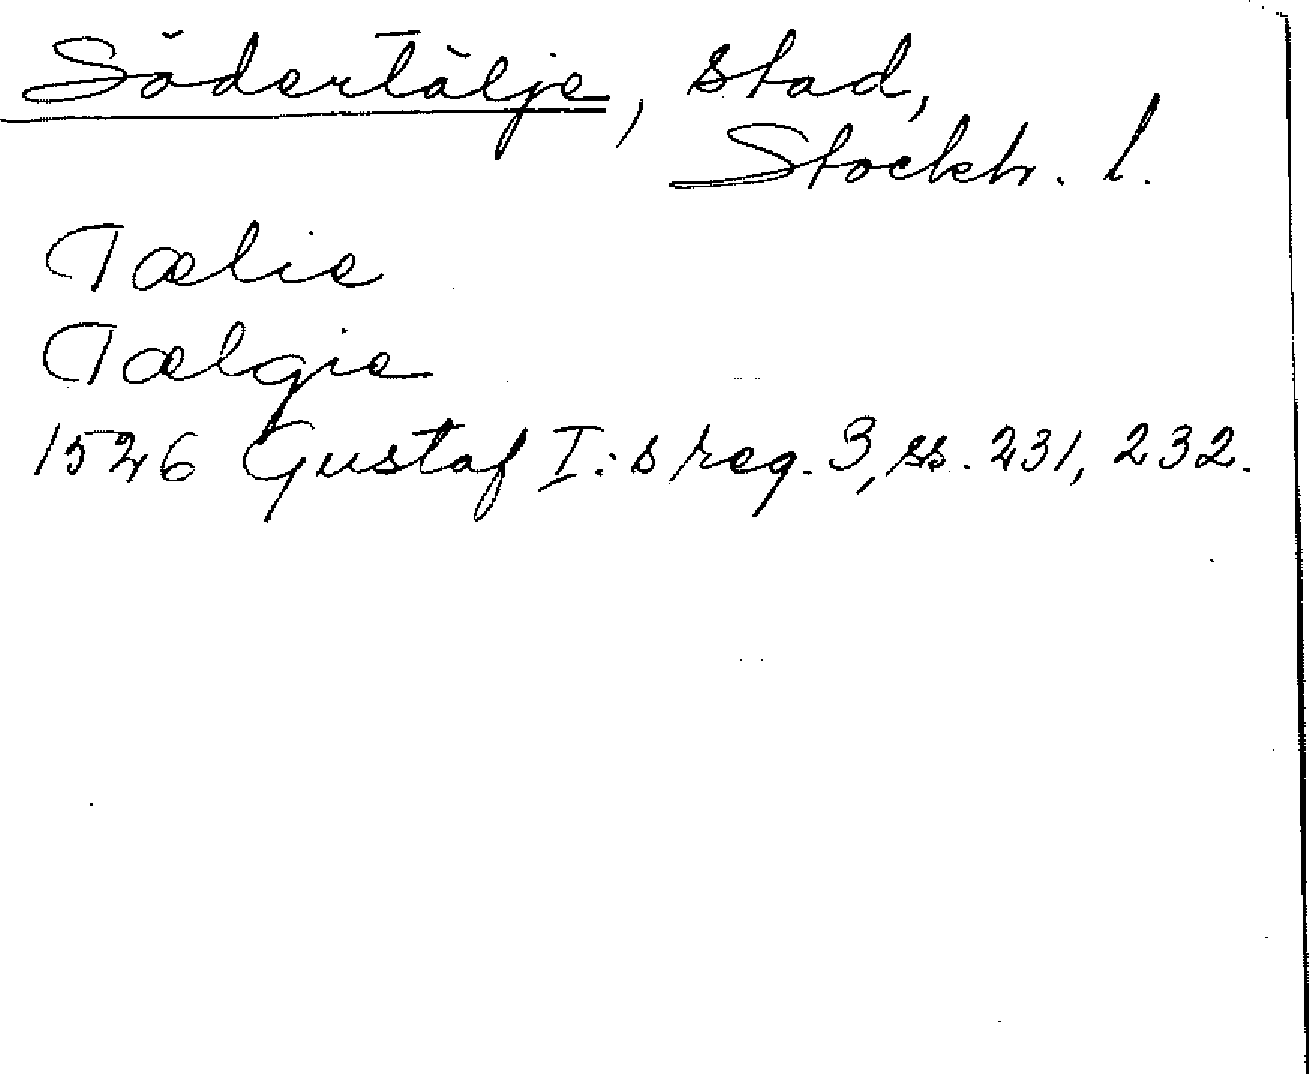 Södertälje, stad,
Stockh. l.
Tælie
Tælgie
1526 Gustaf I:s reg. 3, ss. 231, 232.